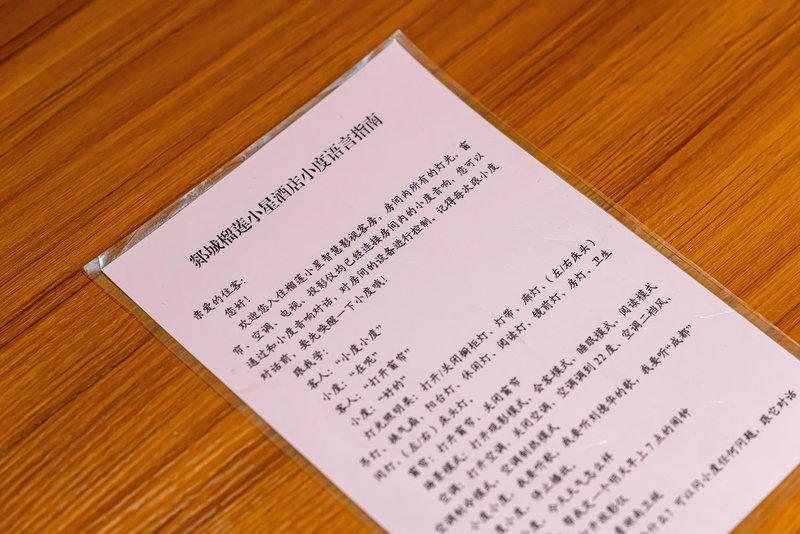 郯城榴莲小星酒店小度语言指南
亲爱的住客：
您好！
欢迎您入住榴莲小星智慧影视客房，房间内所有的灯光、窗
节、空调、电视、投影仪均已经连接房间内的小度音响，您可以
通过和小度音响对话，对房间的设备进行控制，记得每次跟小度
对话前，要先唤醒一下小度哦！
跟我学：
客人：“小度小度”
小度：“在呢”
客人：“打开窗节”
小度：“好的”
灯光照明类：打开/关闭橱柜灯、灯带、廊灯、(左/右床头)
吊灯、换气扇、阳台灯、休闲灯、阅读灯、镜前灯、房灯、卫生
间灯、(左/右)床头灯、
窗节：打开窗节、关闭窗节
场景模式：打开观影模式、会客模式、睡眠模式、阅读模式
空调：打开空调、关闭空调、空调调到22度、空调二档风、
空调制冷模式、空调制热模式
小度小度，我要听歌、我要听刘德华的歌、我要听“成都”
度小度，停止播放、
小度，今天天气怎么样
帮我定一个明天早上7点的闹钟
打开投影仪
什么？可以问小度任何问题，跟它对话